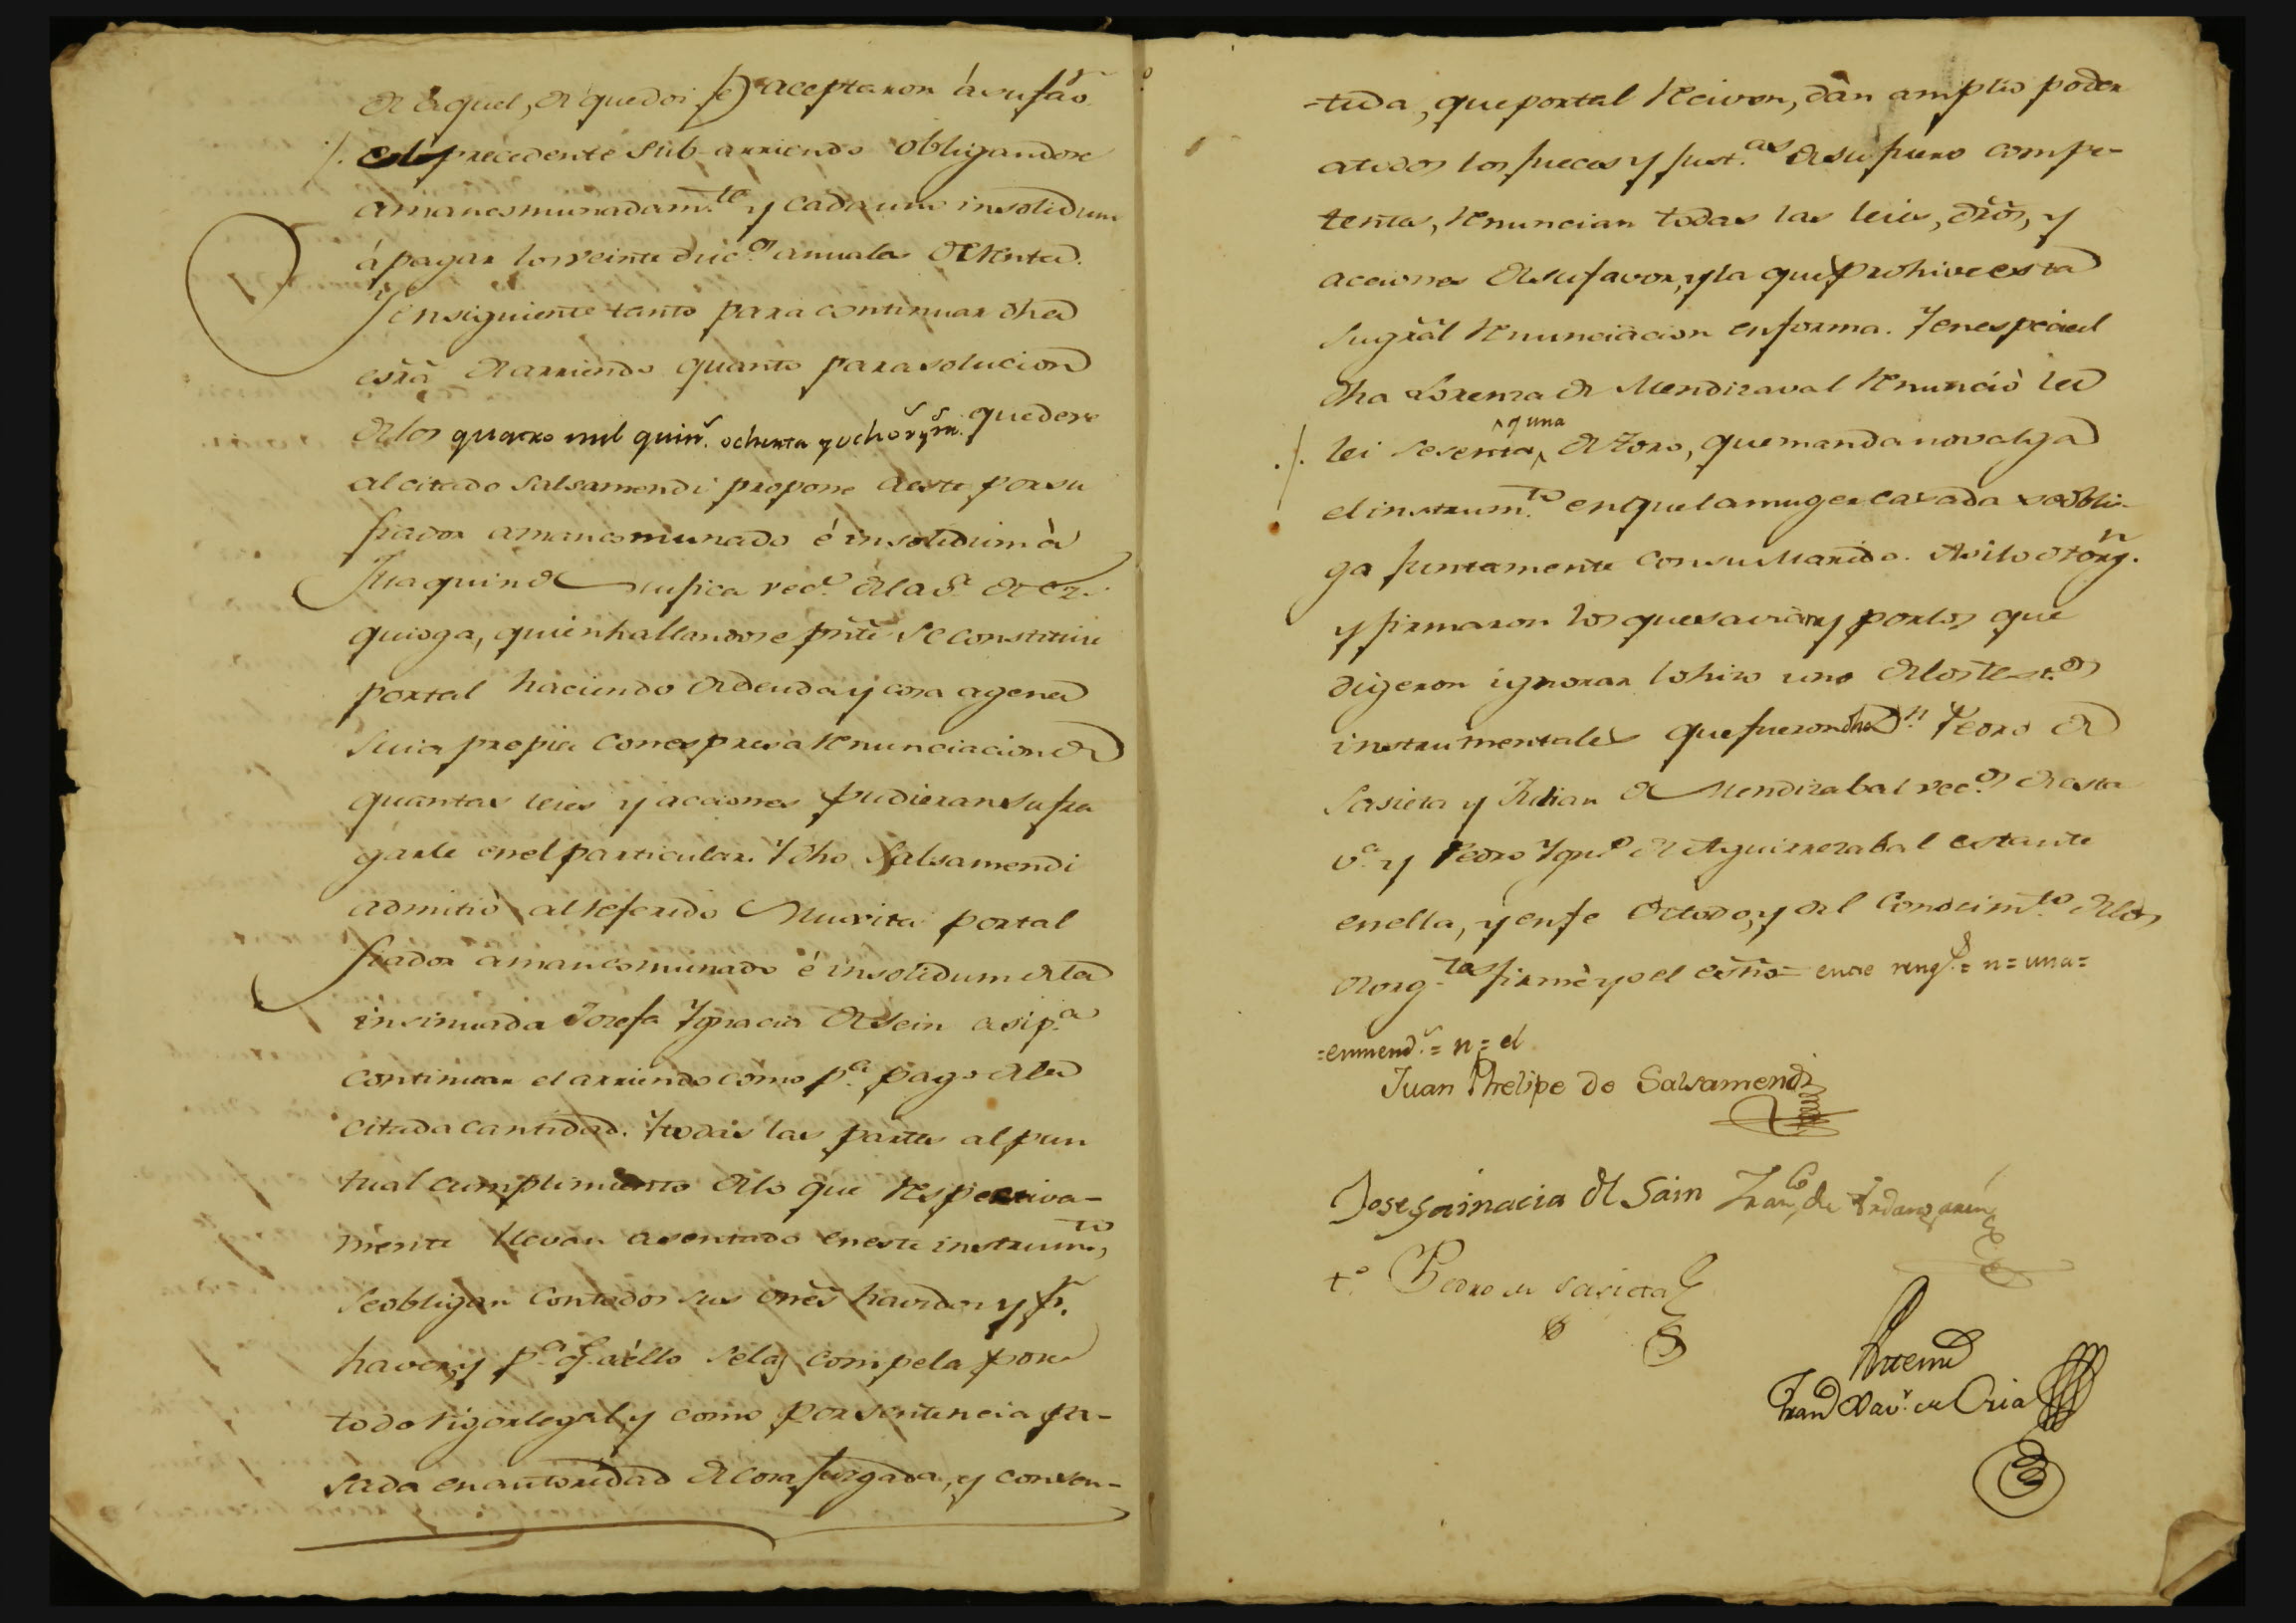 de aquel, de que doi fe) aceptaron á su fãõr
el precedente sub-arriendo obligandose
amancomunadam.te y cada uno insolidum
á pagar los veinte duc.s anuales de renta.
Y insiguiente tanto para continuar dha
esrã de arriendo quanto para solucion
de los quatro mil quin.s ochenta y ocho r.s y m. que deve
al citado Salsamendi propone a este por su
fiador amancomunado é insolidum à
Juaquin de rec.o de la de Ez-
quioga, quien hallandose pñte se constituie
por tal haciendo de deuda y cosa agena
suia propia con espresa renunciacion de
quantas leies y acciones pudieran sufra
garle en el particular. Y dho Salsamendi
admitió al referido por tal
fiador amancomunado é insolidum de la
insinuada Josefa Ygnacia de Sein asi p.a
continuar el arriendo como p.a pago de la
citada cantidad. Y todas las partes al pun
tual cumplimiento de lo que respectiva-
mente llevan asentado en este instrum.to,
se obligan con todos sus vnes havidos y p.r
haver, y p.a q.e a ello se les compela por
todo rigor legal y como por sentencia pa-
sada en autoridad de cosa juzgada, y consen-
=tida, que por tal reciven, dan amplio poder
a todos los jueces y just.as de su fuero compe-
tentes, renuncian todas las leies, dr̃os, y
acciones de su favor, y la que prohive esta
su grãl renunciacion en forma. Y en especial
dha Lorenza de Mendizaval renunció la
y una
lei sesenta, de Toro, que manda no valga
el instrum.to en que la muger casada se obli-
ga juntamente con su Marido. Asi lo otorg.n
y firmaron los que savian y por los que
digeron ignorar lo hizo uno de los test.os
instrumentales que fueron dho D.n Pedro de
Sasieta y Julian de Mendizabal vec.s de esta
v.a y Pedro Ygn.o de Aguirrezabal estante
en ella, y en fe de todo, y del conocim.to de los
otorg.tes firmè yo el esñõ= entre rengl.s = n = una =
=enmend.o = n = el
Juan Phelipe de Salsamendi
Josefa inacia de Sain Fran.co de Ardanz
t.o Pedro de Sasieta
Ante mi
Fran.co Xav.r de Oria